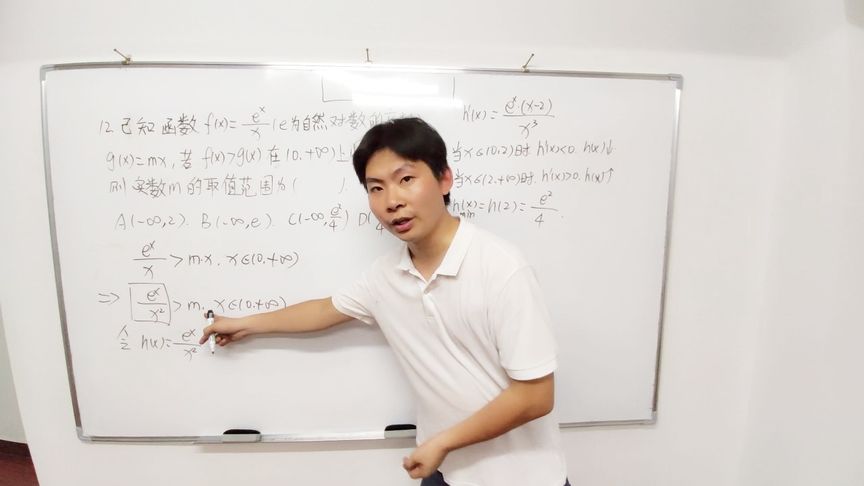 12.已知函数 f(x)=e^x/x (e为自然对数的
g(x)=mx,若 f(x)>g(x) 在(0,+∞)上
则实数m的取值范围为( ).
A(-∞,2). B(-∞,e). C(-∞,e²/4) D(
e^x/x > m·x. x∈(0,+∞)
=> e^x/x² > m. x∈(0,+∞)
令 h(x)=e^x/x²
h'(x)=e^x·(x-2)/x³
当x∈(0,2)时 h'(x)<0. h(x)↓
当x∈(2,+∞)时. h'(x)>0. h(x)↑
h(x)min=h(2)=e²/4.